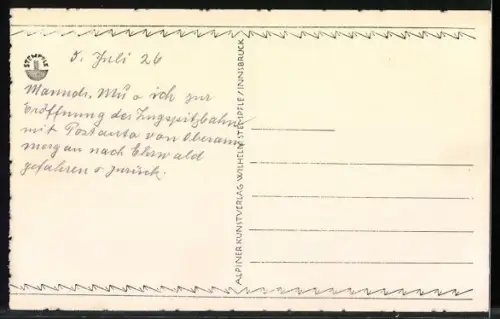 STEMPFLE
5. Juli 26
Mannch. Mu u ich zur
Eröffnung der Zugspitzbahn
mit Postauto von Oberam
mergau nach Ehrwald
gefahren u zurück.
ALPINER KUNSTVERLAG WILHELM STEMPFLE/INNSBRUCK